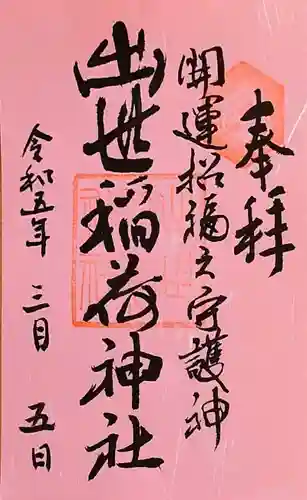 奉拝
開運招福之守護神
出世稲荷神社
令和五年 三月 五日